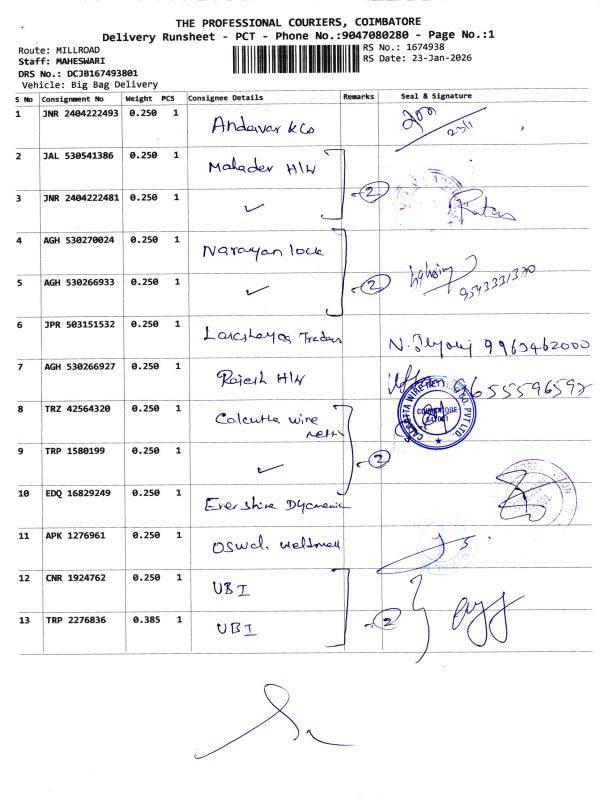 THE PROFESSIONAL COURIERS, COIMBATORE
Delivery Runsheet - PCT - Phone No.:9047080280 - Page No.:1
Route: MILLROAD
RS No.: 1674938
Staff: MAHESWARI
RS Date: 23-Jan-2026
DRS No.: DCJB167493801
Vehicle: Big Bag Delivery
S No Consignment No Weight PCS Consignee Details Remarks Seal & Signature
1 JNR 2404222493 0.250 1 Andavar & Co 23/1
2 JAL 530541386 0.250 1 Mahadev H/W
3 JNR 2404222481 0.250 1 ✓ 2
4 AGH 530270024 0.250 1 Narayan lock
5 AGH 530266933 0.250 1 ✓ 2
6 JPR 503151532 0.250 1 Traders N. 9963462000
7 AGH 530266927 0.250 1 Rajesh H/W 9655596597
8 TRZ 42564320 0.250 1 Calcutta wire
CALCUTTA WIRE CO. PVT. LTD. COIMBATORE
9 TRP 1580199 0.250 1 ✓ 2
10 EDQ 16829249 0.250 1
11 APK 1276961 0.250 1 Oswal
12 CNR 1924762 0.250 1 UBI
13 TRP 2276836 0.385 1 UBI 2